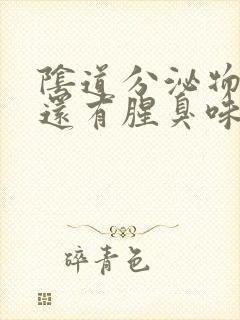 陰道分泌物
還有腥臭味
碎青色